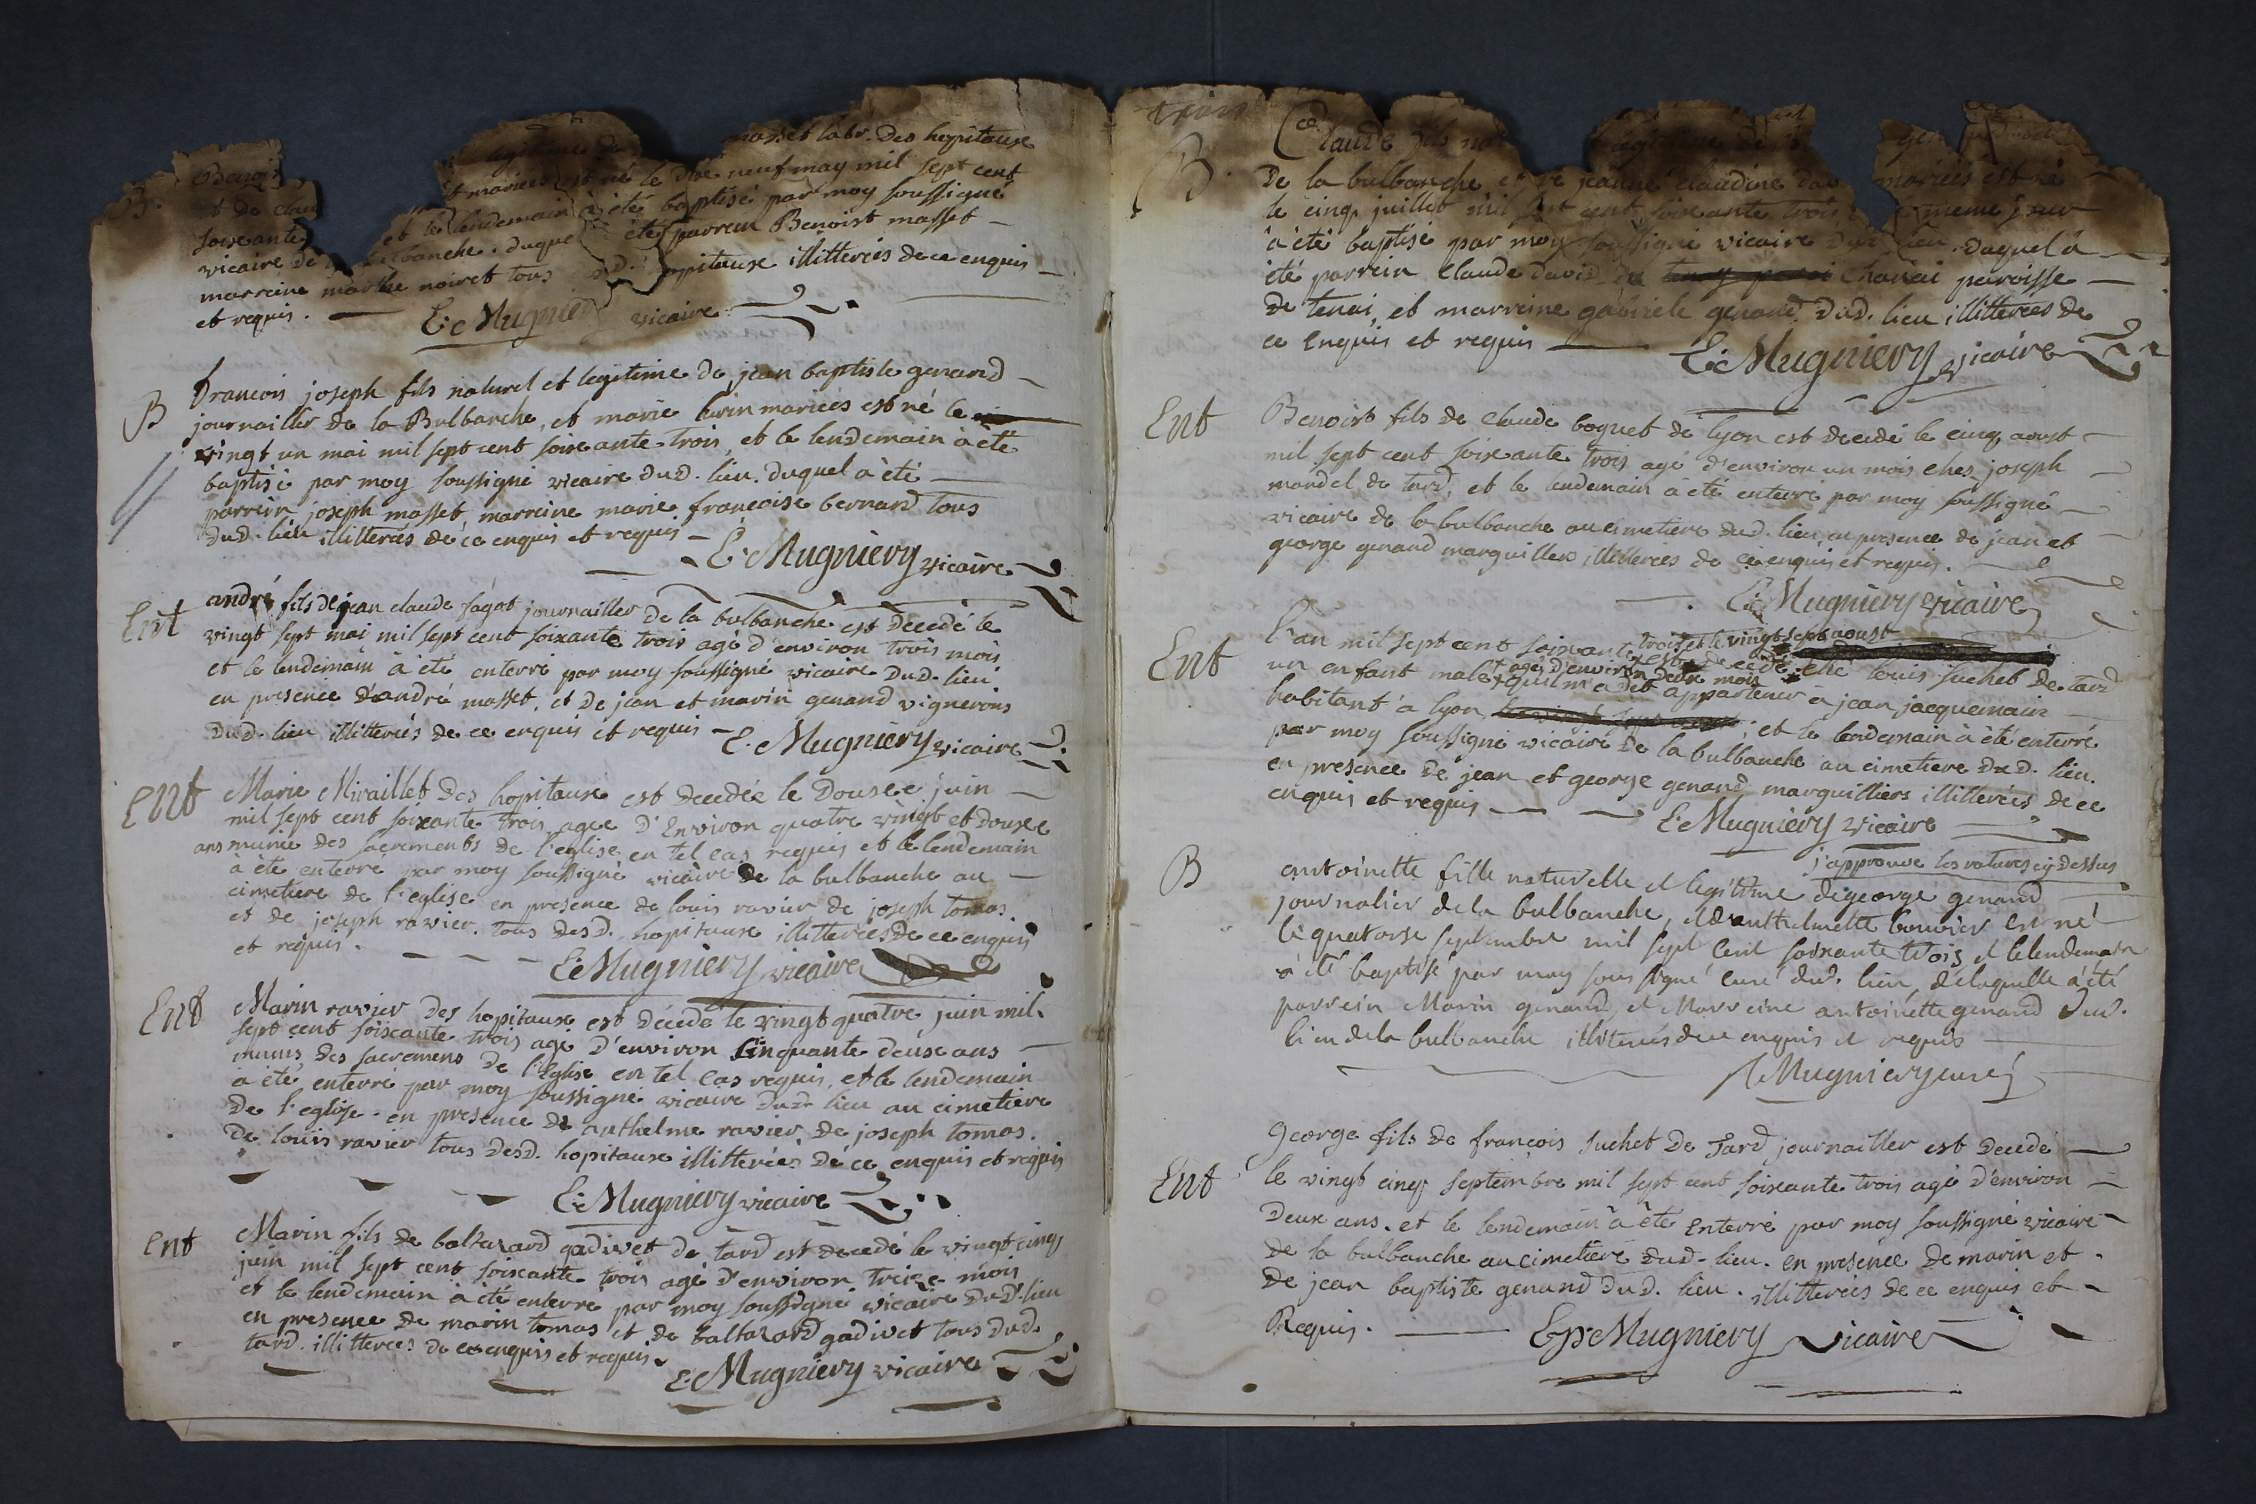 masset labr. des hopitaux
Benoi
et mariées est né le dix neuf may mil sept cent
et de clau
soixante et le lendemain à été baptisé par moy soussigné
vicaire de bulbanche. duquel été parrein Benoist masset
marreine marthe noiret tous dud. hopitaux illitterés de ce enquis
et requis. E: Mugniery vicaire
B
françois joseph fils naturel et legitime de jean baptiste genand
journailler de la Bulbanche, et marie livin mariées est né le
vingt un mai mil sept cent soixante trois, et le lendemain à été
baptisé par moy soussigné vicaire dud. lieu. duquel à été
parrein joseph masset, marreine marie françoise bernard tous
dud. lieu illitterés de ce enquis et requis E: Mugniery vicaire
Ent
andré fils de jean claude fagot journailler de la bulbanche est décedé le
vingt sept mai mil sept cent soixante trois agé d'environ trois mois
et le lendemain à été enterré par moy soussigné vicaire dud. lieu
en presence d'andré masset, et de jean et marin genand vignerons
dud. lieu illitterés de ce enquis et requis E. Mugniery vicaire
Ent
Marie Miraillet des hopitaux est decedée le Douse juin
mil sept cent soixante trois agee d'Environ quatre vingt et douse
ans munie des sacrements de l'eglise en tel cas requis et le lendemain
à été enterré par moy soussigné vicaire de la bulbanche au
cimetiere de l'eglise en presence de louis ravier de joseph tomas.
et de joseph ravier. tous desd. hopitaux illitterées de ce enquis
et requis. E: Mugniery vicaire
Ent
Marin ravier des hopitaux est décédé le vingt quatre juin mil
sept cent soixante trois agé d'environ Cinquante deux ans
munis des sacremens de l'Eglise en tel cas requis, et le lendemain
à été enterré par moy soussigné vicaire dud. lieu au cimetiere
De l'eglise. en presence de anthelme ravier, de joseph tomas.
de louis ravier tous desd. hopitaux illitterées de ce enquis et requis
E: Mugniery vicaire
Ent
Marin fils de baltazard gadivet de tard est decedé le vingt cinq
juin mil sept cent soixante trois agé d'environ treize mois
et le lendemain à été enterré par moy soussigné vicaire dud. lieu
en presence de marin tomas et de baltazard gadivet tous dud.
tard. illitterées de ce enquis et requis.
E: Mugniery vicaire
B.
Claude fils
De la bulbanche et de jeanne claudine mariées est né
le cinq juillet mil sept cent soixante trois meme jour
à été baptisé par moy soussigné vicaire dud. lieu. duquel à
été parrein Claude david de Chanai paroisse
de tenai, et marreine gabriele genand dud. lieu illitterées de
ce Enquis et requis E: Mugniery vicaire
Ent
Benoist fils de claude boquet de lyon est decedé le cinq aoust
mil sept cent soixante trois agé d'environ un mois ches joseph
mandel de tard, et le lendemain à été enterré par moy soussigné
vicaire de la bulbanche au cimetiere dud. lieu en presence de jean et
george genand marguilliers illitterées de ce enquis et requis.
E: Mugniery vicaire
Ent
l'an mil sept cent soixante trois et le vingt sept aoust
un enfant male agé d'environ deux mois est decedé ché louis suchet de tard
qu'il m'a dit appartenir à jean jacquemain
habitant à lyon, ; et le lendemain à été enterré
par moy soussigné vicaire de la bulbanche au cimetiere dud. lieu.
en presence de jean et george genand marguilliers illitterées de ce
enquis et requis E: Mugniery vicaire
j'approuve les ratures cy dessus
B
antoinette fille naturelle et legitime de george genand
journalier de la bulbanche, et d'anthelmette bouvier est né
le quatorse septembre mil sept cent soixante trois et le lendemain
à été baptisé par moy soussigné curé dud. lieu, de laquelle à été
parrein Marin genand, et Marreine antoinette genand dud.
lieu de la bulbanche illiterés de ce enquis et requis
Mugniery curé
Ent
george fils de françois suchet de Tard journailler est decedé
le vingt cinq septembre mil sept cent soixante trois agé d'environ
Deux ans. et le lendemain à été Enterré par moy soussigné vicaire
de la bulbanche au cimetiere dud. lieu. en presence de marin et
de jean baptiste genand dud. lieu. illitterées de ce enquis et
Requis. E: Mugniery vicaire